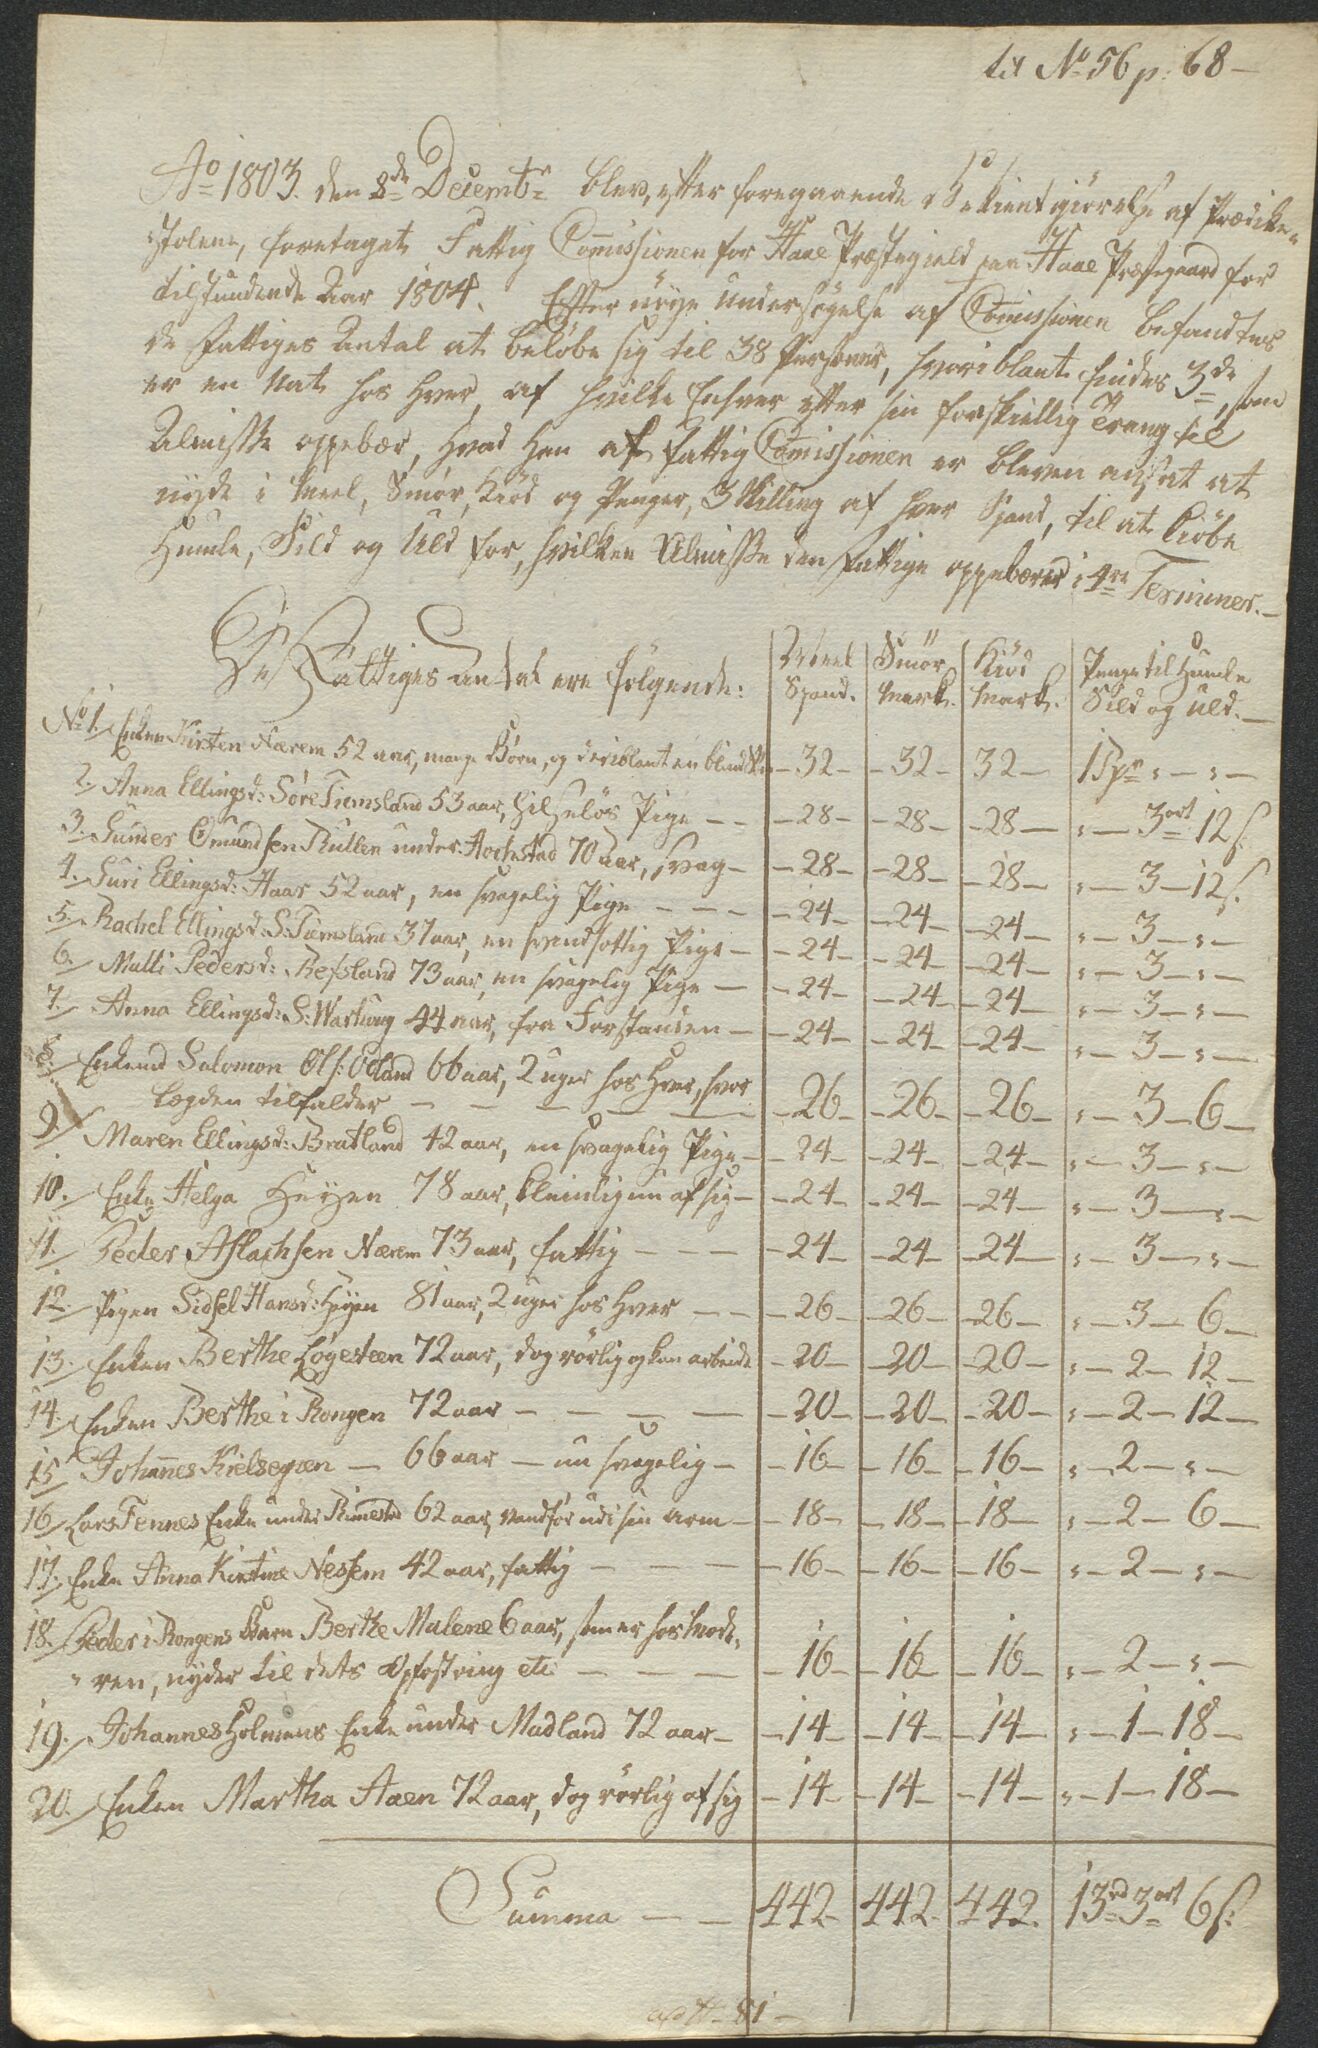 til No 56 p: 68 –
Ao 1803. den 8de Decembr blev, efter foregaaende Bekientgiørelse af Prædike-
stolene, foretaget Fattig Commissionen for Haae Præstegield paa Haae Præstegaard for
tilstundende Aar 1804. Efter nøye Undersøgelse af Commissionen befandtes
de Fattiges Antal at beløbe sig til 38 Personer, hvoriblant findes 3de, som
er en Nat hos hver, af hvilke Enhver efter sin forskiellig Trang til
Almisse oppebær, hvad han af Fattig Commissionen er bleven ansat at
nyde i Meel, Smør, Kiød og Penger, 3 Skilling af hver Spand, til at kiøbe
Humle, Sild og Uld for, hvilken Almisse den Fattige oppebærer i 4re Terminer. –
De Fattiges Antal ere følgende: Meel Spand. Smør Mark. Kiød Mark. Penge til Humle Sild og Uld. –
No 1. Enken Kirsten Nærem 52 aar, mange Børn, og deriblant en blind – 32 – – 32 – 32 – 1 Spe „ – „ –
2. Anna Ellingsd: Søre Tiemsland 53 aar, hielpeløs Pige – – – 28 – – 28 – – 28 – „ – 3 ort 12 s.
3. Gunder Omundsen Kullen under Hochstad 70 aar, svag – – 28 – – 28 – – 28 – „ – 3 – 12 s.
4. Guri Ellingsd: Haar 52 aar, en svagelig Pige – – – – 24 – – 24 – – 24 – „ – 3 – „ –
5. Rachel Ellingsd: S: Tiemsland 37 aar, en Pige – – 24 – – 24 – – 24 – „ – 3 – „ –
6. Malli Pedersd: Refsland 73 aar, en svagelig Pige – – 24 – – 24 – – 24 – „ – 3 – „ –
7. Anna Ellingsd: S: Warhoug 44 aar, fra Forstanden – – 24 – – 24 – – 24 – „ – 3 – „ –
8. Enkemd Salomon Ols: Odland 66 aar, 2 uger hos hver, hvor
Lægden tilfalder – – – – – – 26 – – 26 – – 26 – „ – 3 – 6 –
9. Maren Ellingsd: Bratland 42 aar, en svagelig Pige – – 24 – – 24 – – 24 – „ – 3 – „ –
10. Enke Helga Høyen 78 aar, af sig – – 24 – – 24 – – 24 – „ – 3 – „ –
11. Peder Aslachsen Nærem 73 aar, fattig – – – – 24 – – 24 – – 24 – „ – 3 – „ –
12. Pigen Sidsel Hansd: Høyen 81 aar, 2 uger hos hver – – – 26 – – 26 – – 26 – „ – 3 – 6 –
13. Enken Berthe Løgesteen 72 aar, dog rørlig og kan arbeide – 20 – – 20 – – 20 – „ – 2 – 12 –
14. Enken Berthe i Rongen 72 aar – – – – – 20 – – 20 – – 20 – „ – 2 – 12 –
15. Johannes Kielsegren – 66 aar – nu svagelig – – 16 – – 16 – – 16 – „ – 2 – „ –
16. Lars Tennes Enke under Rimestad 62 aar, vanfør udi sin arm – – 18 – – 18 – – 18 – „ – 2 – 6 –
17. Enke Anna Kirstine Nessem 42 aar, fattig – – – – 16 – – 16 – – 16 – „ – 2 – „ –
18. Peder i Rongens Barn Berthe Malene 6 aar, som er hos Mode-
ren, nyder til dets Opfostring etc – – – – 16 – – 16 – – 16 – „ – 2 – „ –
19. Johannes Holmens Enke under Madland 72 aar – – 14 – – 14 – – 14 – „ – 1 – 18 –
20. Enken Martha Aaen 72 aar, dog rørlig af sig – 14 – – 14 – – 14 – „ – 1 – 18 –
Summa – – 442 – 442. 442. 13 rd 3 ort 6 s.
81 –